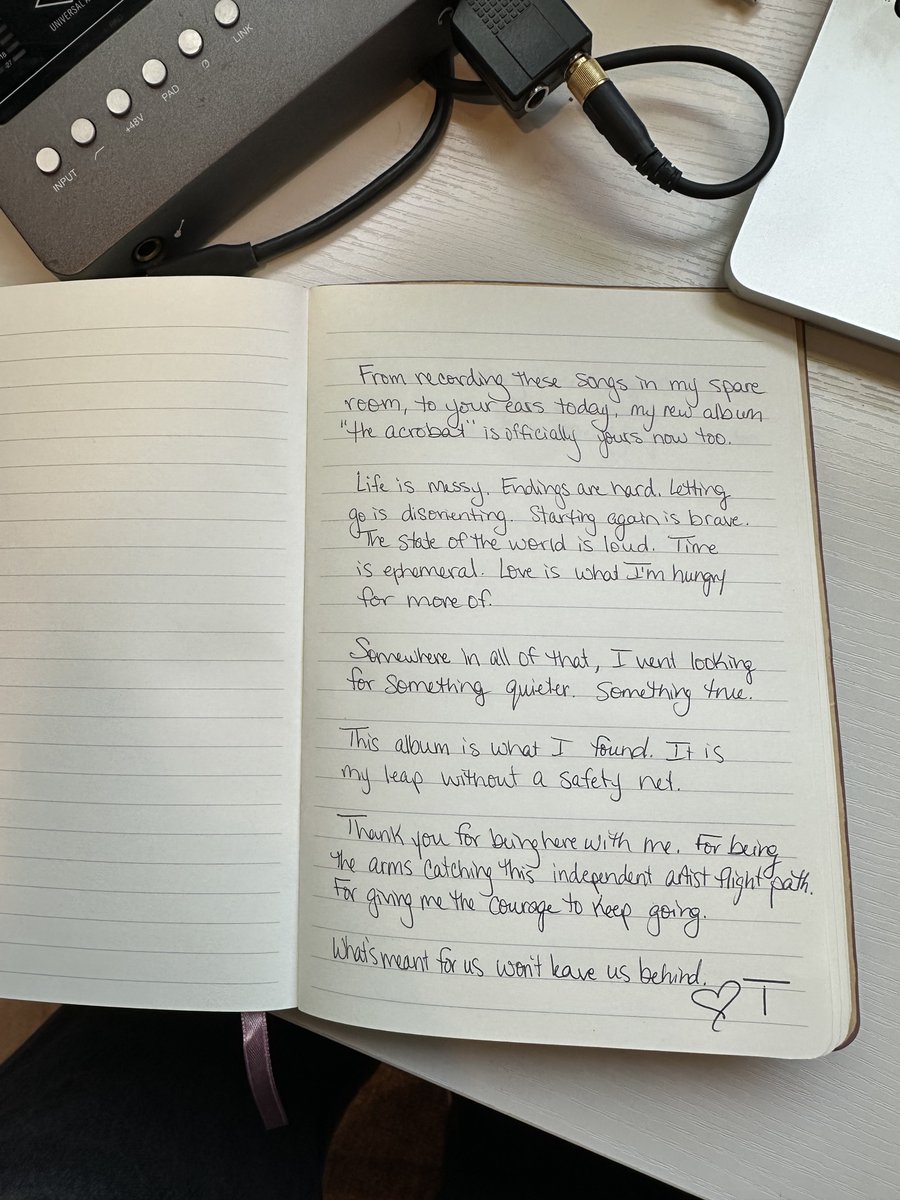 UNIVERSAL A
LINK
PAD
+48V
INPUT
From recording these songs in my spare
room, to your ears today, my new album
"the acrobat" is officially yours now too.
Life is messy. Endings are hard. Letting
go is disorienting. Starting again is brave.
The state of the world is loud. Time
is ephemeral. Love is what I'm hungry
for more of.
Somewhere in all of that, I went looking
for something quieter. Something true.
This album is what I found. It is
my leap without a safety net.
Thank you for being here with me. For being
the arms catching this independent artist flight path.
For giving me the courage to keep going.
What's meant for us won't leave us behind.
♡ T